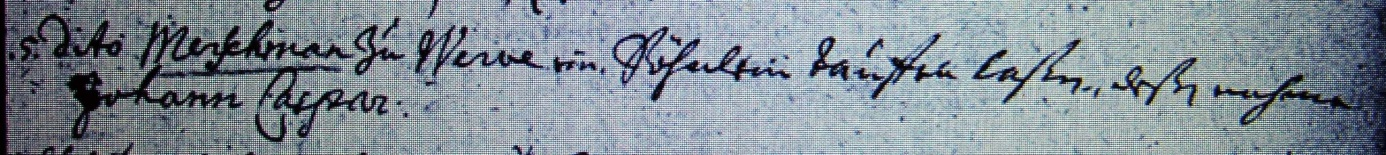 5. dito Merschman zu Werve ein Söhnlein tauffen laßen, deßen nahme
Johann Caspar.